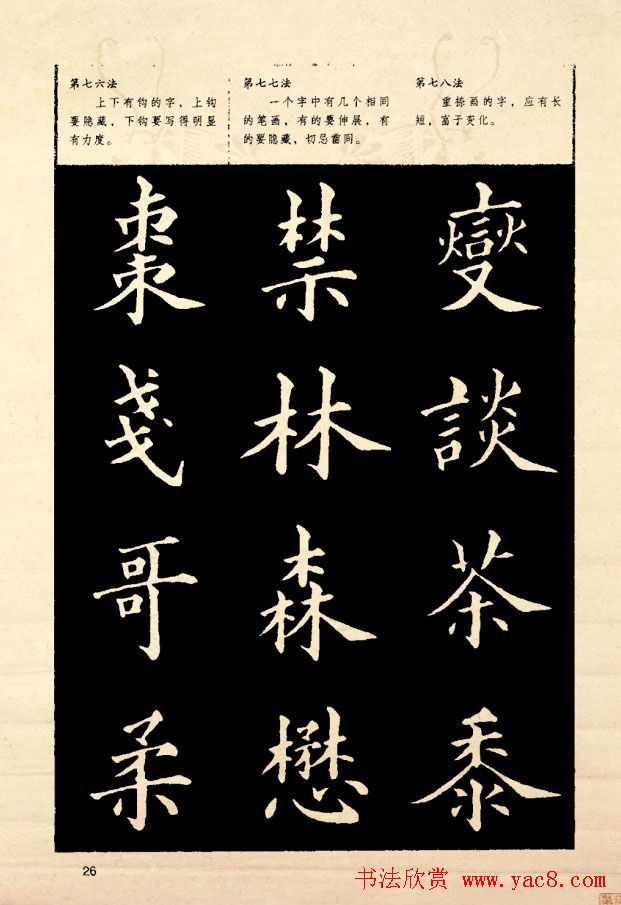 第七六法
上下有钩的字，上钩
要隐藏，下钩要写得明显
有力度。
第七七法
一个字中有几个相同
的笔画，有的要伸展，有
的要隐藏，切忌雷同。
第七八法
重捺画的字，应有长
短，富于变化。
棗 禁 變
戔 林 談
哥 森 茶
柔 懋 黍
26
书法欣赏 www.yac8.com